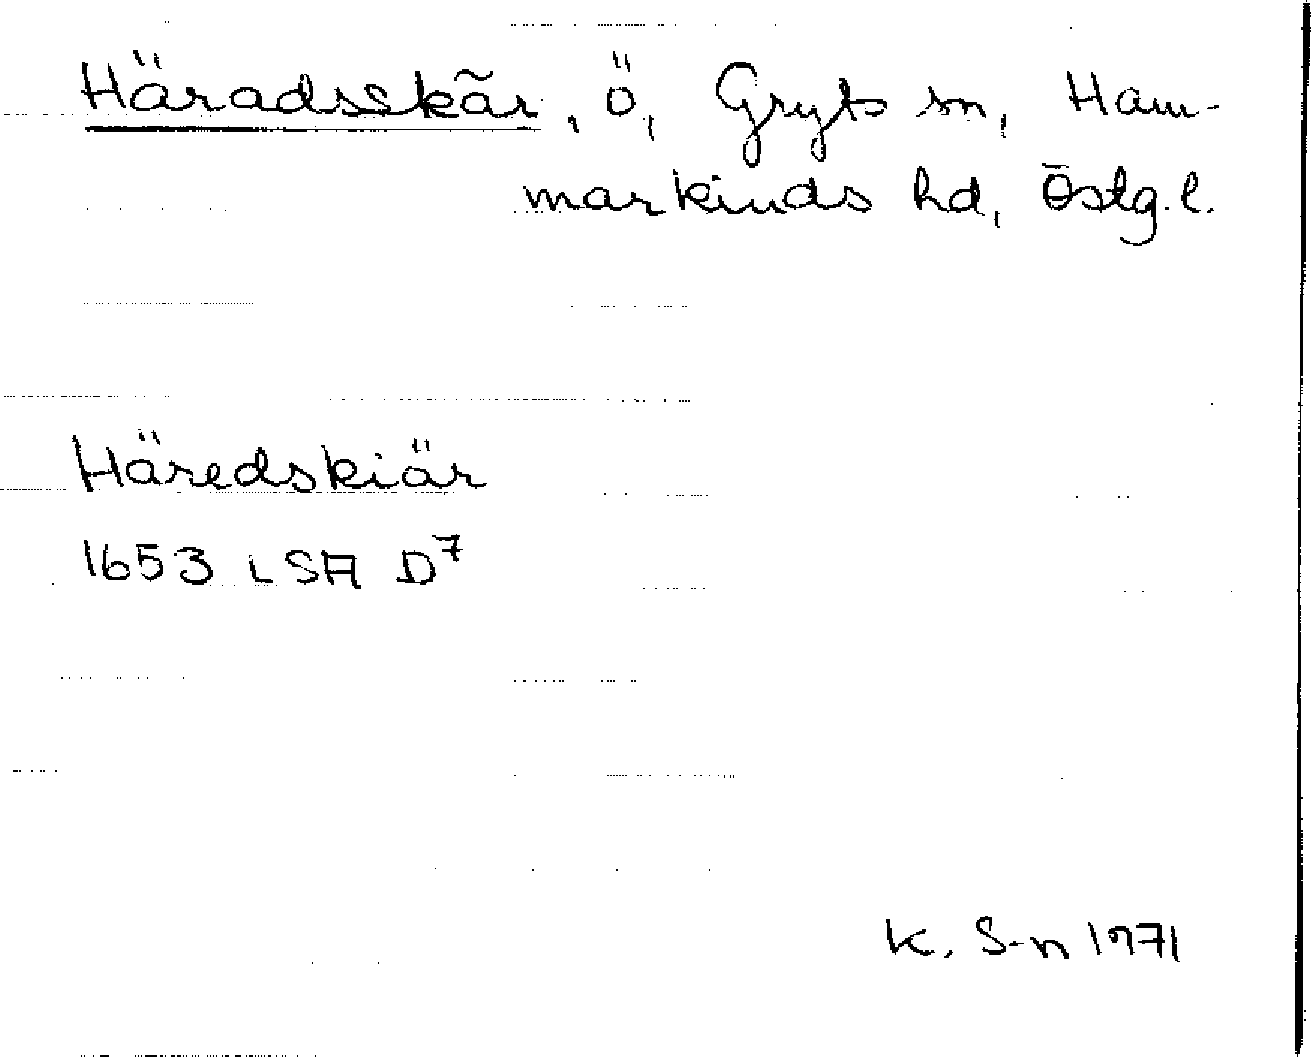 Häradsskär, ö, Gryts sn, Ham-
markinds hd, Östg.l.
Häredskiär
1653 LSA D7
K. S-n 1971